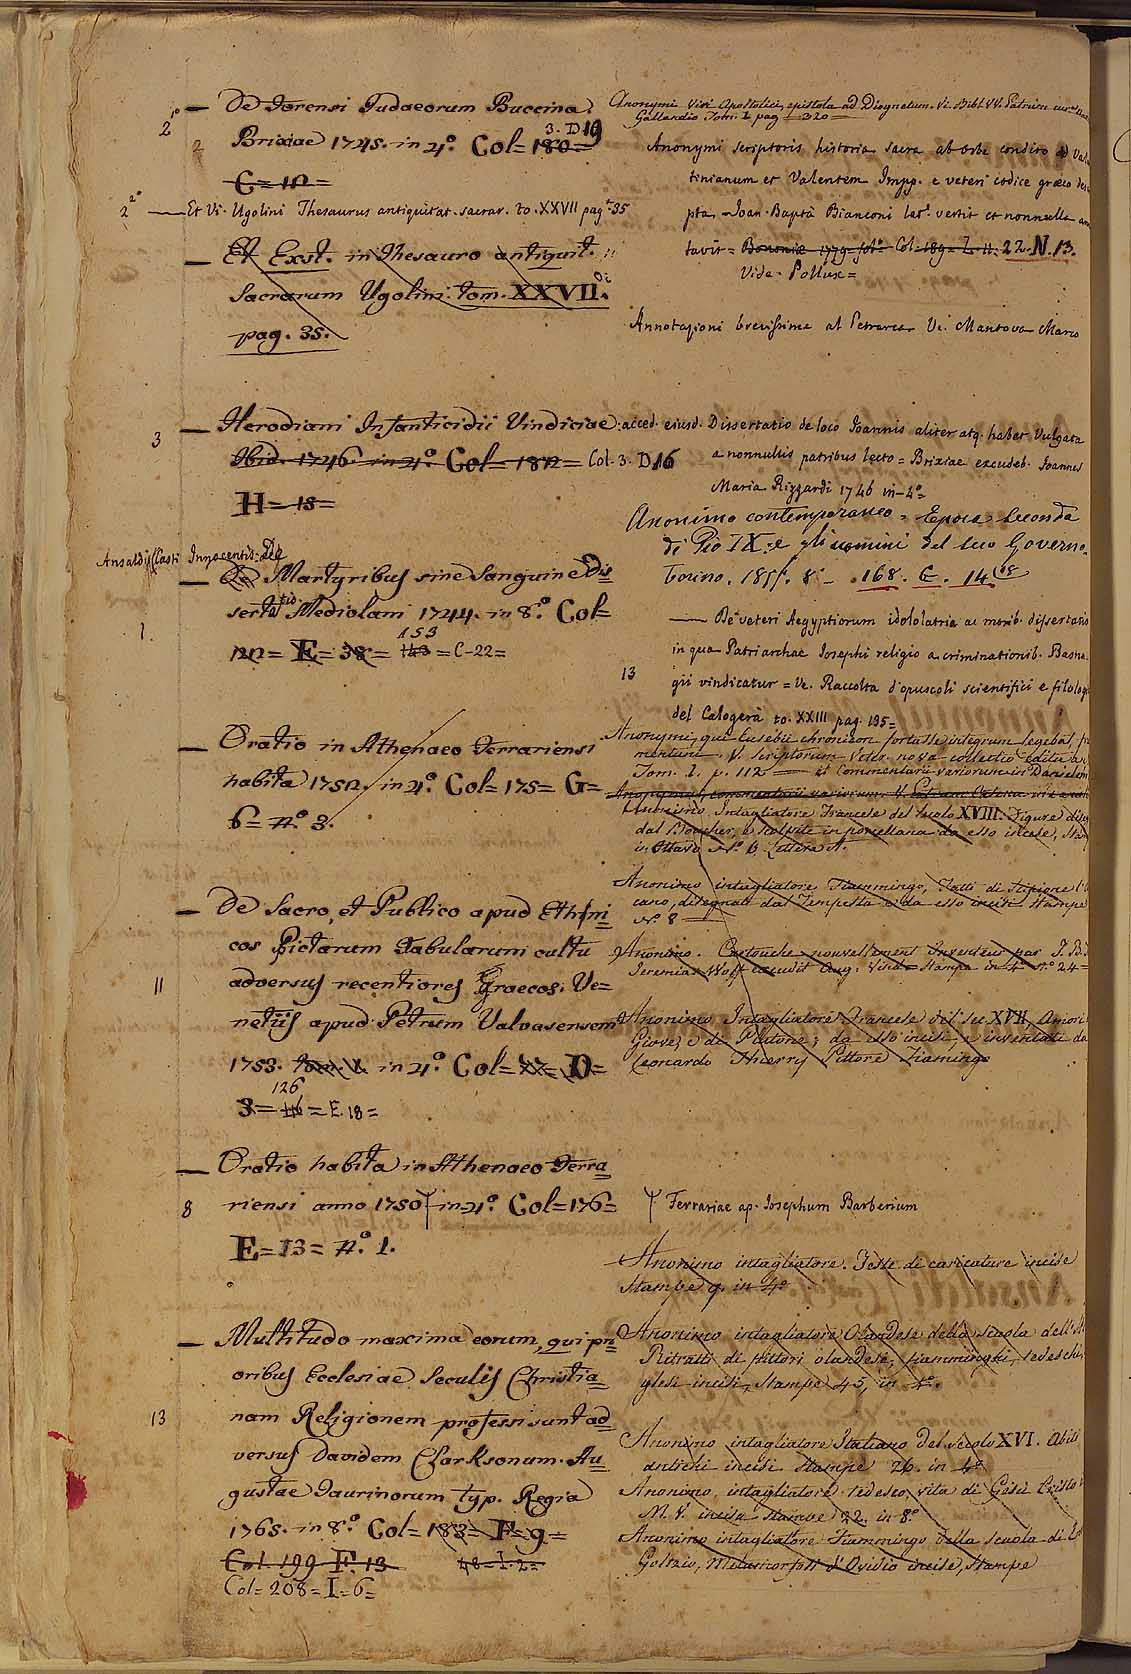 2° — De Forensi Judaeorum Buccina.
Brixiae 1745. in 4°. Col= 180=
3. D 19
2
G= 10=
2 2° — Et Vi. Ugolini Thesaurus antiquitat. sacrar. to. XXVII pag. 35
— Et Exst. in Thesauro antiquit.
Sacrarum Ugolini. tom. XXVII.
pag. 35.
3 — Herodiani Infanticidii Vindiciae:
Ibid. 1746. in 4°. Col= 180= Col. 3. D16
H= 15=
Ansaldi (Casti Innocentis: De
— De Martyribus sine Sanguine Dis=
sertatio Mediolani 1744. in 8°. Col=
1.
153
= E= 38= 143 = C-22=
— Oratio in Athenaeo Ferrariensi
habita 1750. in 4°. Col= 175= G=
6= N°. 3.
— De Sacro, et Publico apud Ethni=
cos Pictarum Tabularum cultu
11
adversus recentiores Graecos. Ve=
netiis apud Petrum Valvasensem
1753. in 4°. Col= D=
126
3= 116= E. 18=
— Oratio habita in Athenaeo Ferra=
8
riensi anno 1750 in 4°. Col= 176=
E= 13= N°. 1.
— Multitudo maxima eorum, qui pri=
oribus Ecclesiae Seculis Christia=
13
nam Religionem professi sunt ad=
versus Davidem Clarksonum. Au=
gustae Taurinorum typ. Regia
1765. in 8°. Col= 183= F= 9=
Col. 199 F. 13 48= I. 2=
Col= 208= I= 6=
Anonymi Viri Apostolici, epistola ad Diognetum. Vi. Bibl. VV. Patrum
Gallandio Tom. I. pag. 320=
Anonymi scriptoris historia sacra ab orbe condito ad
tinianum et Valentem Impp. e veteri codice graeco
pta, Joan. Bapta Bianconi lat. vertit et nonnulla
tavit= Bononiae 1779 fol° Col. 189= L. 11= 22. N. 13.
Vide. Pollux=
Annotazioni brevissime al Petrarca Vi. Mantova Marco
acced. eiusd. Dissertatio de loco Joannis aliter atq. habet Vulgata
a nonnullis patribus lecto= Brixiae excudeb. Joannes
Maria Rizzardi 1746 in-4°=
Anonimo contemporaneo. Epoca Seconda
di Pio IX. e gli uomini del suo Governo.
Torino. 8° 168. G. 14
— De veteri Aegyptiorum idololatria ac morib. dissertatio
in qua Patriarchae Josephi religio a criminationib. Basna=
13
gii vindicatur= Ve. Raccolta d'opuscoli scientifici e filolog
del Calogerà to. XXIII pag. 195=
Anonymi, qui Eusebii chronicon fortasse integrum legebat,
V. Scriptorum Veter. nova collectio edita
Tom. I. p. 112 — et Commentarii variorum in Danielem
Anonymi, commentarii variorum. V.
Anonimo Intagliatore Francese del Secolo XVIII. Figure
dal Boucher, e scolpite in porcellana da esso incise,
in Ottavo N°. 6. Lettera A.
Anonimo intagliatore Fiammingo, Fatti di Scipione
cano, disegnati dal Tempesta e da esso incisi Stampe
N°. 8 —
Anonimo. Cartouche nouvellement Inventées par J. B.
Jeremias Wolff excudit Aug. Vind. Stampe in 4° n° 24=
Anonimo Intagliatore Francese del sec. XVII, Amori
Giove, e di Plutone; da esso incisi, e inventati da
Leonardo Thierry Pittore Fiamingo
Ferrariae ap. Josephum Barberium
Anonimo intagliatore. Teste di caricature incise
Stampe 9. in 4°
Anonimo intagliatore Olandese della scuola dell'
Ritratti di pittori olandesi, fiamminghi, tedeschi,
glesi incisi, Stampe 45, in 4°.
Anonimo intagliatore Italiano del secolo XVI. Abiti
antichi incisi Stampe 26. in 4°
Anonimo intagliatore tedesco, vita di Gesù Cristo
M. V. incisa stampe 22. in 8°.
Anonimo intagliatore Fiammingo della scuola di
Golzio, Metamorfosi d'Ovidio incise, Stampe